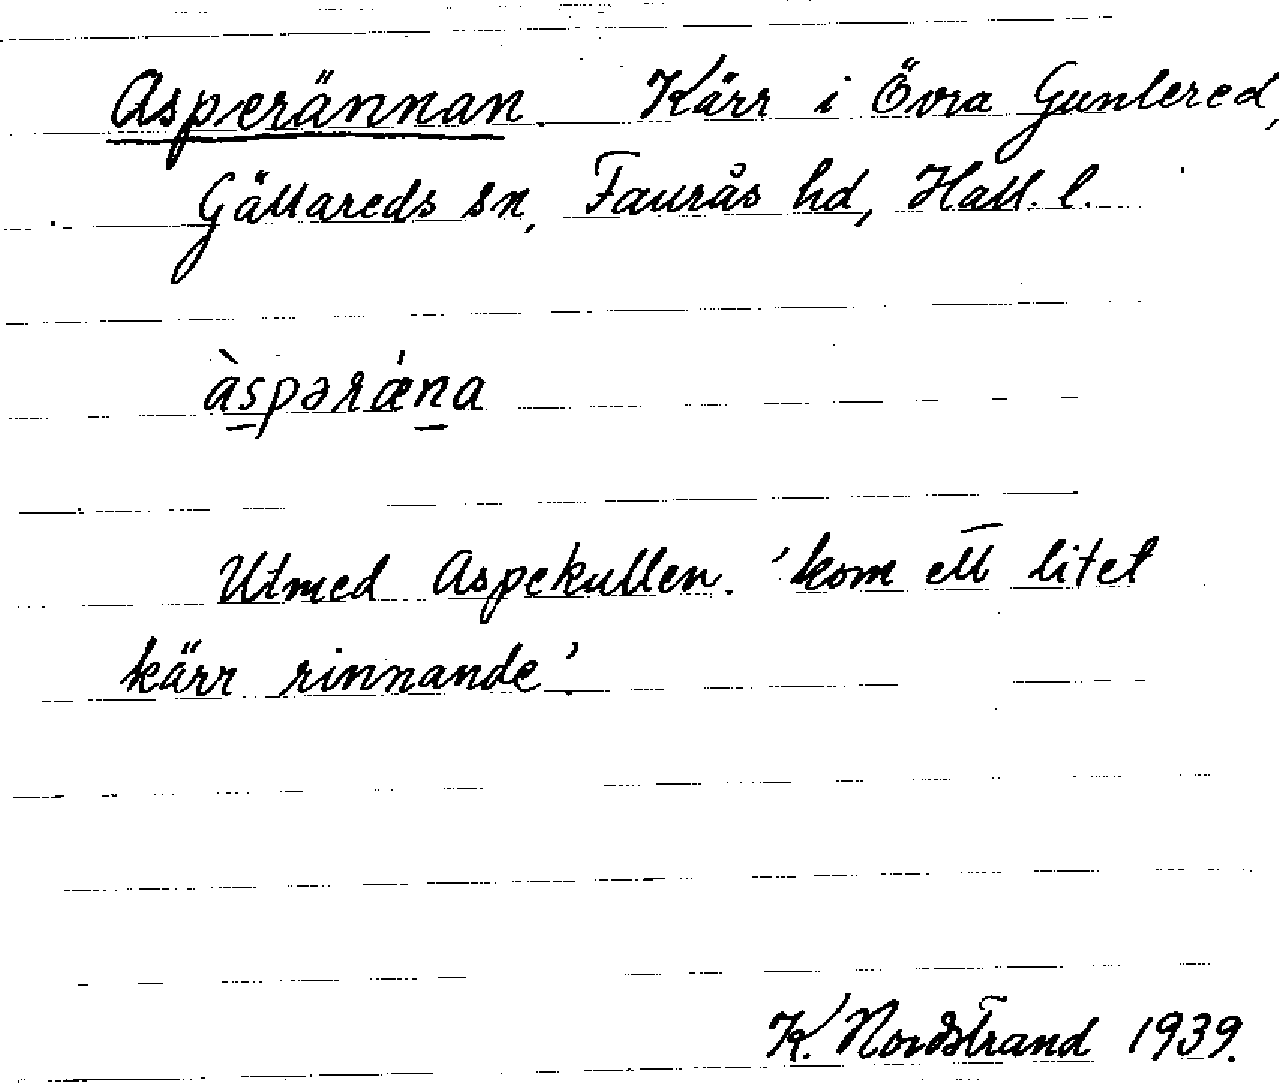 Asperännan. Kärr i Övra Gunlered,
Gällareds sn, Faurås hd, Hall. l.
às̱pərǽṉa
Utmed Aspekullen. 'kom ett litet
kärr rinnande'.
K. Nordstrand 1939.